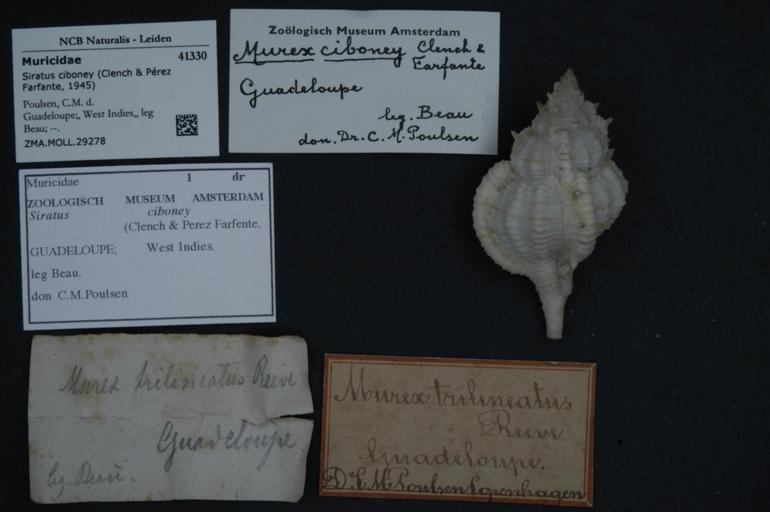 NCB Naturalis - Leiden
Muricidae 41330
Siratus ciboney (Clench & Pérez
Farfante, 1945)
Poulsen, C.M. d.
Guadeloupe;, West Indies,, leg
Beau; --.
ZMA.MOLL.29278
Zoölogisch Museum Amsterdam
Murex ciboney Clench &
Farfante
Guadeloupe
leg. Beau
don. Dr. C. M. Poulsen
Muricidae 1 dr
ZOOLOGISCH MUSEUM AMSTERDAM
Siratus ciboney
(Clench & Perez Farfente,
GUADELOUPE; West Indies,
leg Beau,
don C.M.Poulsen
Murex trilineatus Reeve
Guadeloupe
leg. Beau.
Murex trilineatus
Reeve
Guadeloupe.
Dr. C. M. Poulsen Copenhagen